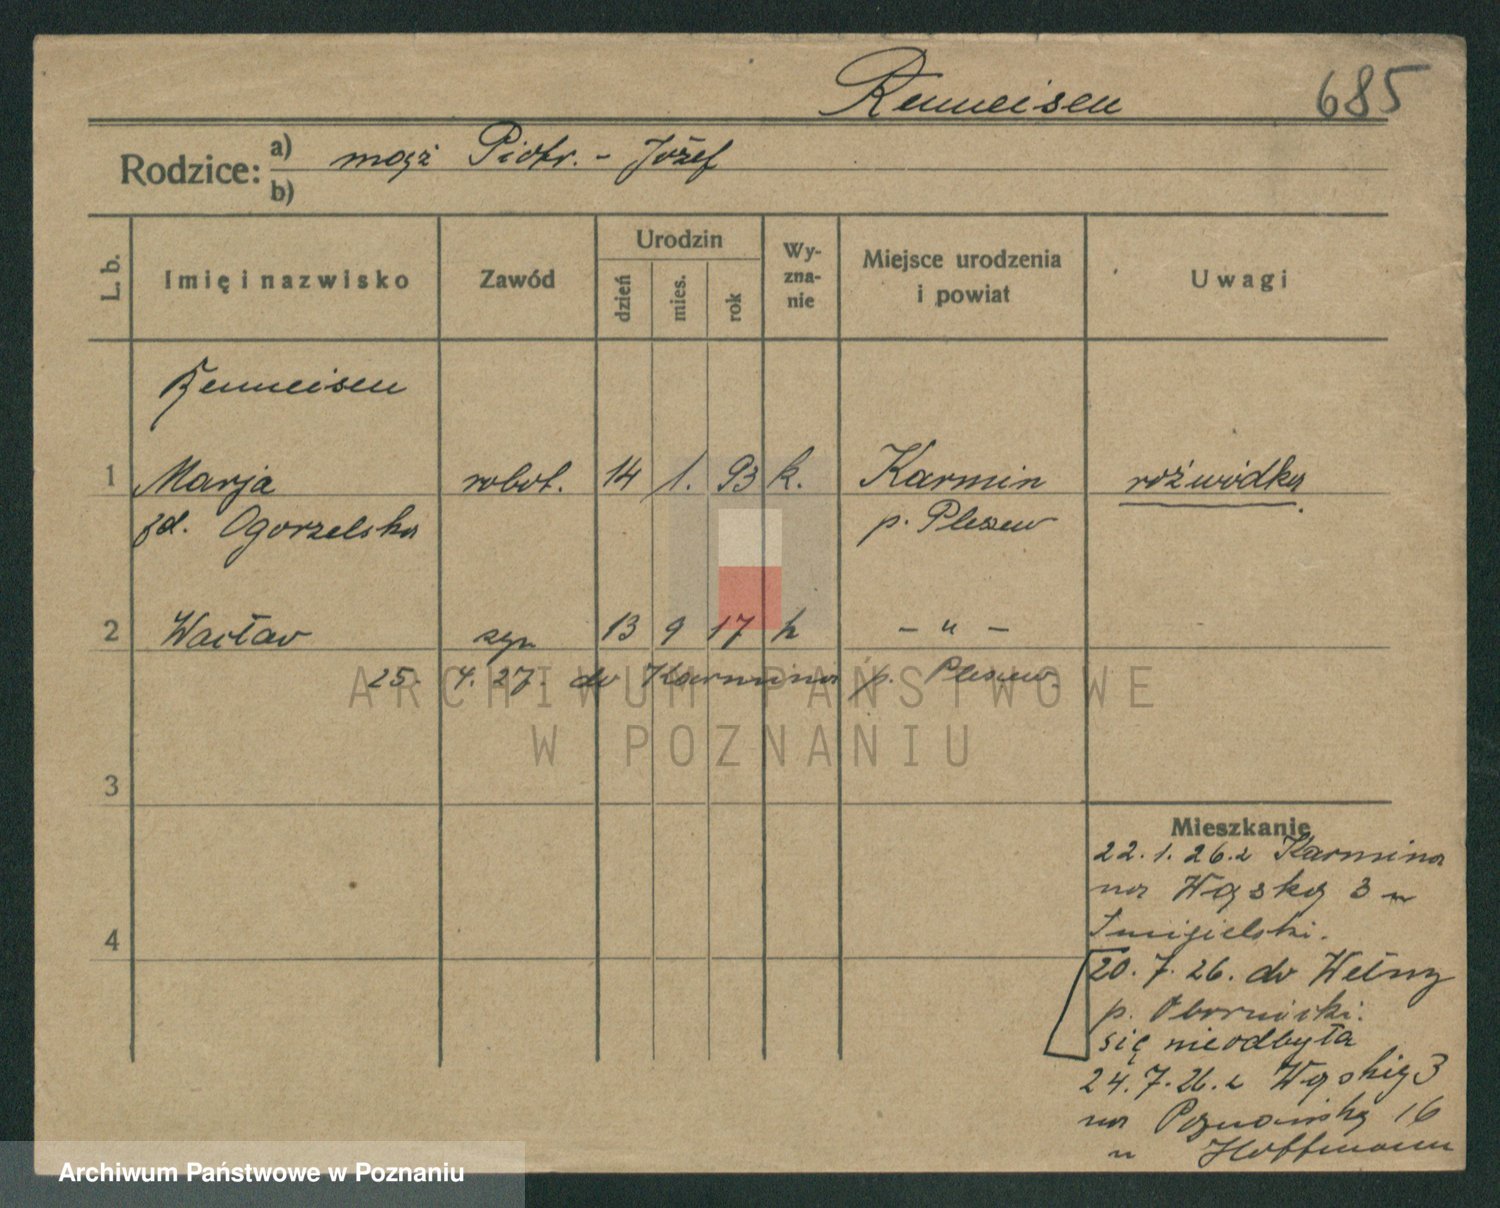 Renneisen 685
Rodzice: a) mąż Piotr. - Józef
b)
L. b. Imię i nazwisko Zawód Urodzin dzień mies. rok Wy-zna-nie Miejsce urodzenia i powiat Uwagi
Renneisen
1 Marja robot. 14 1. 93 k. Karmin rozwódka
zd. Ogorzelska p. Pleszew
2 Wacław syn 13 9 17 k - " -
25. 4. 27. do Karmina p. Pleszew.
ARCHIWUM PAŃSTWOWE
W POZNANIU
3
Mieszkanie
22. 1. 26. z Karmina
na Wąską 3 u
Smigielski.
4
20. 7. 26. do Wełny
p. Obornicki.
się nieodbyła
24. 7. 26. z Wąskiej 3
na Poznańską 16
u Hoffmann
Archiwum Państwowe w Poznaniu